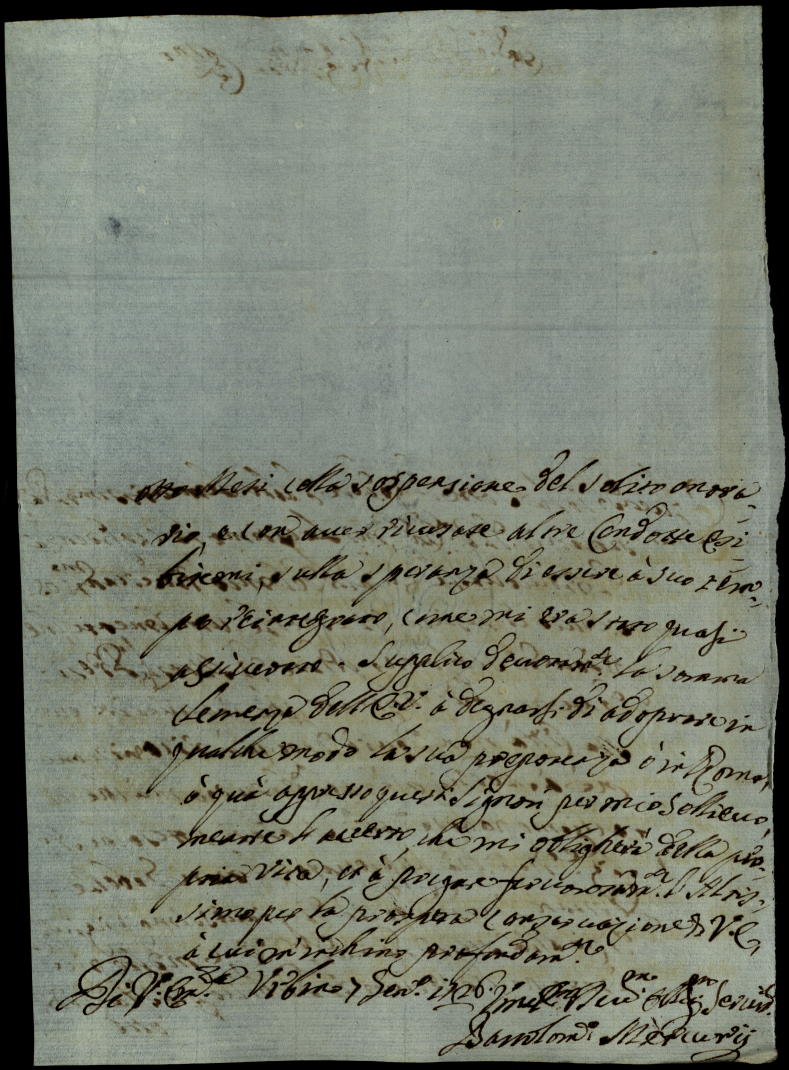 otto Mesi colla sospensione del solito onora-
rio, e con aver ricusate altre Condotte esi-
bitemi, sulla speranza di essere à suo tem-
po reintegrato, come mi era stato quasi
assicurato. Supplico devotam.te la somma
Clemenza dell'E.V. à degnarsi di adoprare in
qualche modo la sua prepotenza ò in Roma,
ò quà appresso questi Signori per mio sollievo,
mentre l'accerto, che mi obligherà della pro-
pria Vita, et à pregare fervorosam.te l'Altis-
simo per la prospera conservazione di V.E.
à cui m'inchino profondam.te
Di V.ra Em.za Urbino 7 Gen.o 1726
Um.o Dev.mo Oblig.mo Servit.
Bartolom.o Mercurij